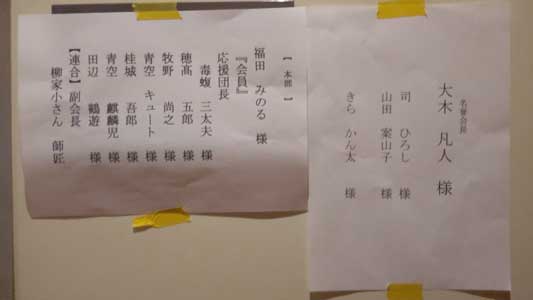 名誉会長
大木 凡人 様
司 ひろし 様
山田 案山子 様
きら かん太 様
【 本部 】
福田 みのる 様
『会員』
応援団長
毒蝮 三太夫 様
穂高 五郎 様
牧野 尚之 様
青空 キュート 様
桂城 吾郎 様
青空 麒麟児 様
田辺 鶴遊 様
【連合】副会長
柳家小さん 師匠